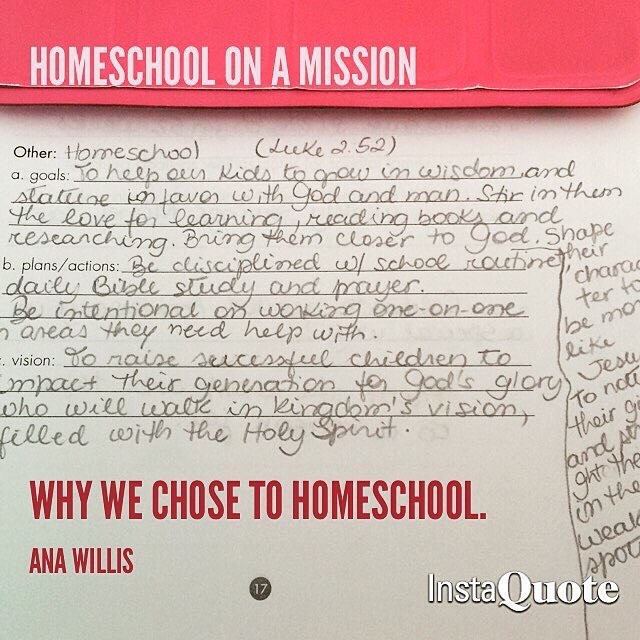 HOMESCHOOL ON A MISSION
Other: Homeschool (Luke 2.52)
a. goals: To help our kids to grow in wisdom and
stature in favor with God and man. Stir in them
the love for learning, reading books and
researching. Bring them closer to God. Shape
their
charac
ter to
be mo
like
Jesu
To
their
and
in the
weak
spot
b. plans/actions: Be disciplined w/ school routine,
daily Bible study and prayer.
Be intentional on working one-on-one
n areas they need help with.
. vision: To raise sucessful children to
impact their generation for God's glory
who will walk in kingdom's vision,
filled with the Holy Spirit.
WHY WE CHOSE TO HOMESCHOOL.
ANA WILLIS
17
InstaQuote